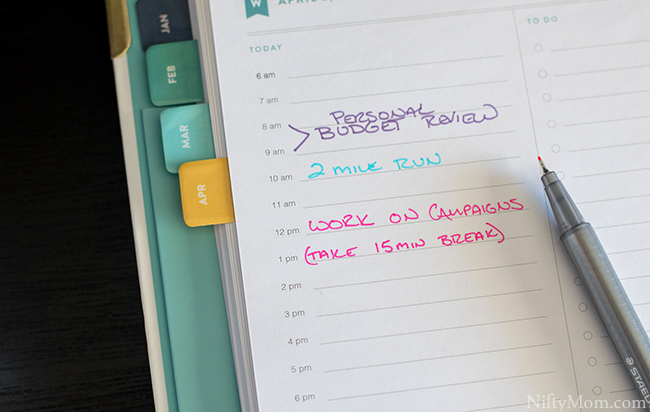 W
TODAY
TO DO
JAN
FEB
MAR
APR
6 am
7 am
PERSONAL
8 am BUDGET REVIEW
9 am
10 am 2 MILE RUN
11 am
12 pm WORK ON CAMPAIGNS
1 pm (TAKE 15 MIN BREAK)
2 pm
3 pm
4 pm
5 pm
6 pm
NiftyMom.com